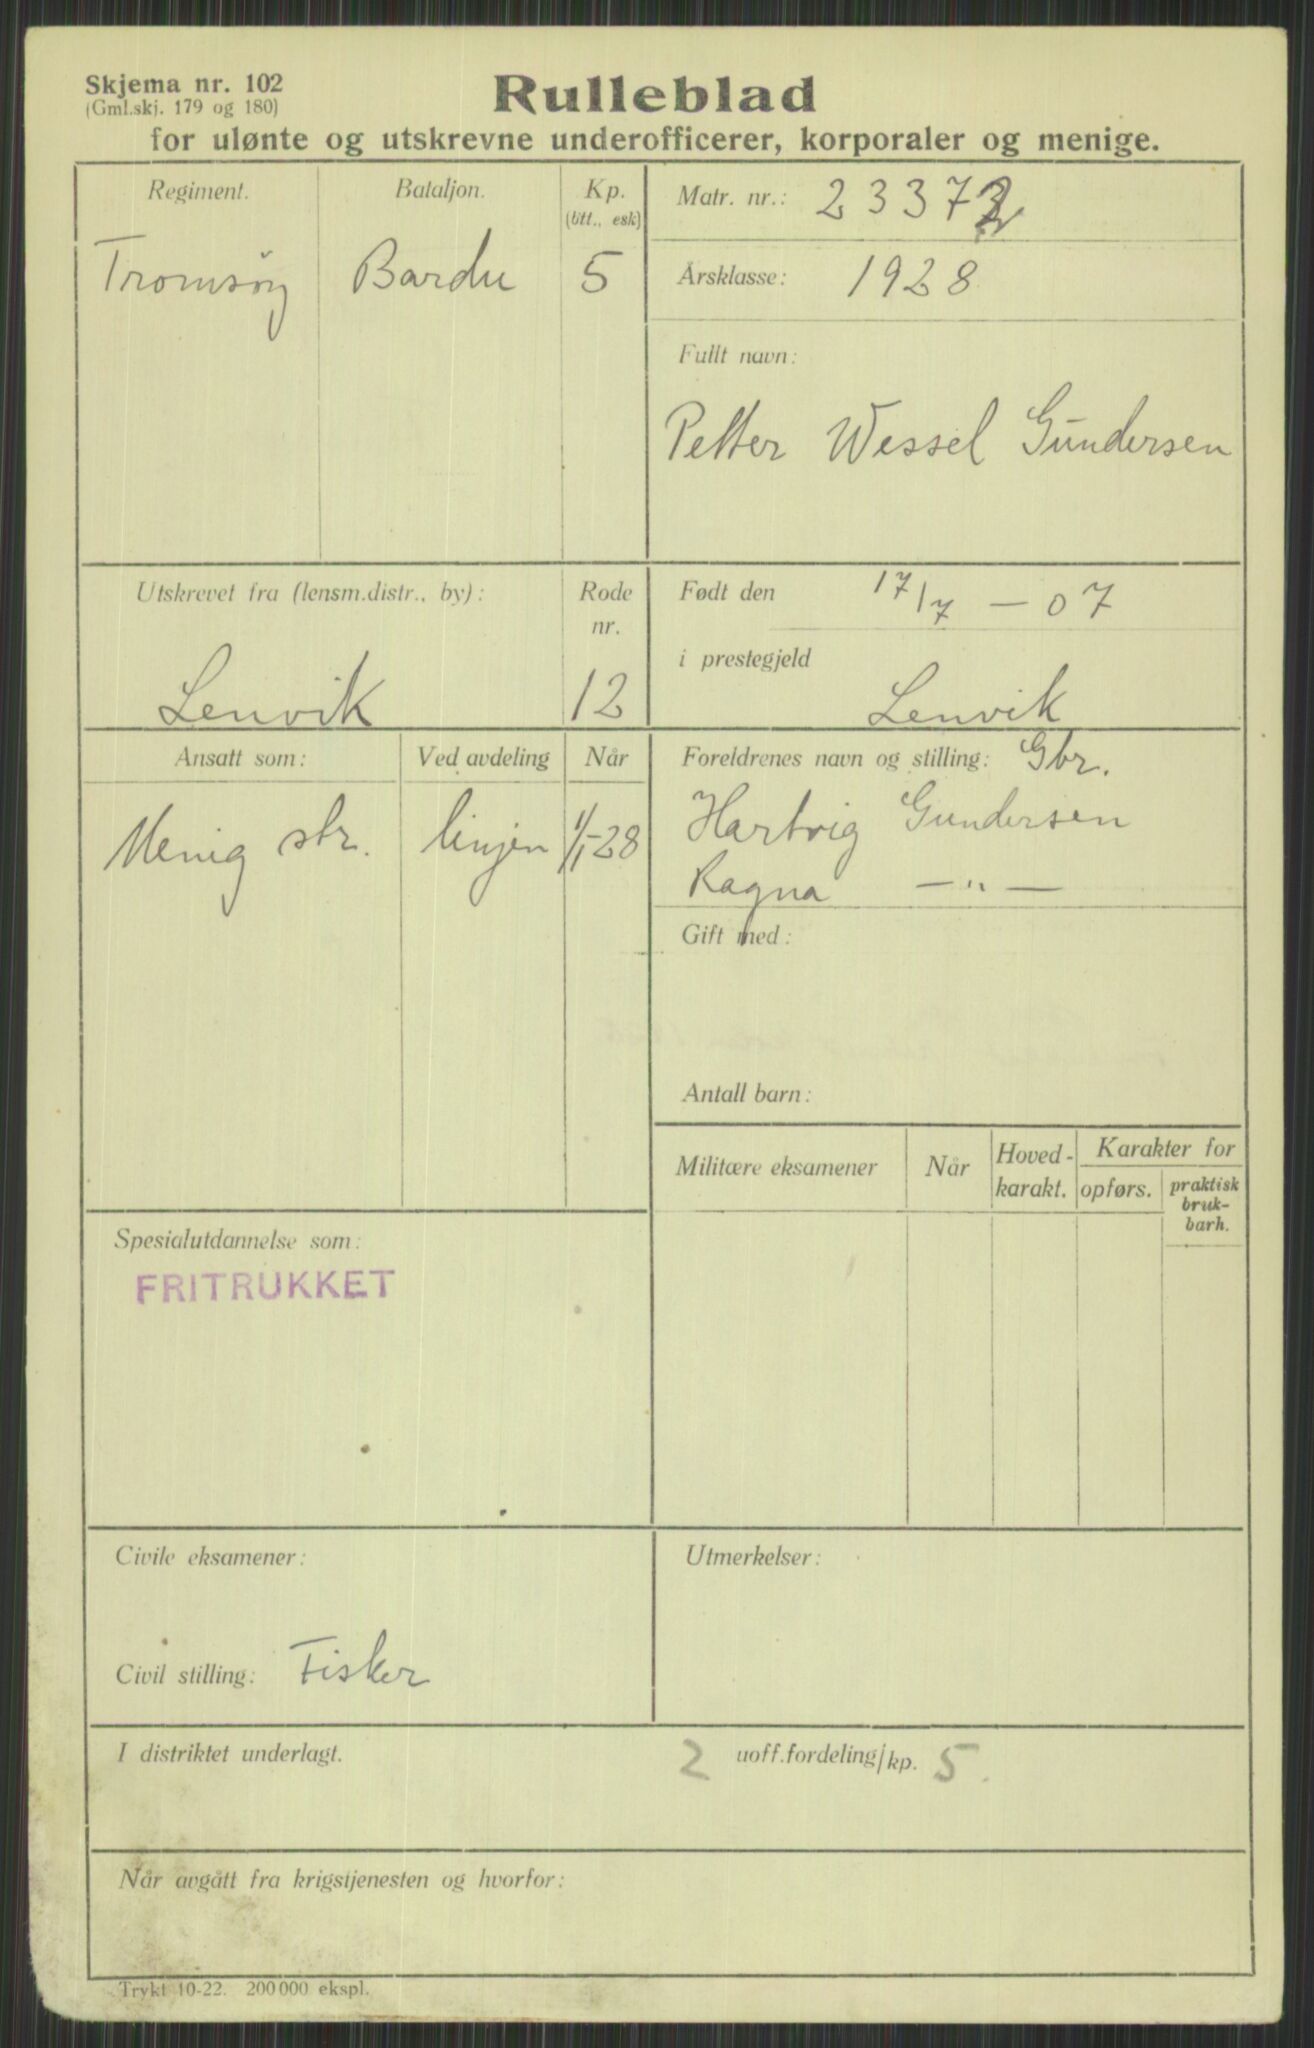 Skjema nr. 102
(Gml.skj. 179 og 180)
Rulleblad
for ulønte og utskrevne underofficerer, korporaler og menige.
Regiment.
Bataljon.
Kp.
(btt., esk)
Tromsøy
Bardu
5
Matr. nr.:
Årsklasse: 1928
Fullt navn:
Petter Wessel Gundersen
Utskrevet fra (lensm.distr., by):
Lenvik
Rode
nr.
12
Født den 17/7 — 07
i prestegjeld
Lenvik
Ansatt som:
Ved avdeling
Når
Menig str.
linjen
1/1-28
Foreldrenes navn og stilling: Gbr.
Hartvig Gundersen
Ragna —"—
Gift med:
Antall barn:
Militære eksamener
Når
Hoved-
karakt.
Karakter for
opførs.
praktisk
bruk-
barh.
Spesialutdannelse som:
FRITRUKKET
Civile eksamener:
Civil stilling: Fisker
Utmerkelser:
I distriktet underlagt.
2 uoff.fordeling/kp. 5.
Når avgått fra krigstjenesten og hvorfor:
Trykt 10-22. 200000 ekspl.